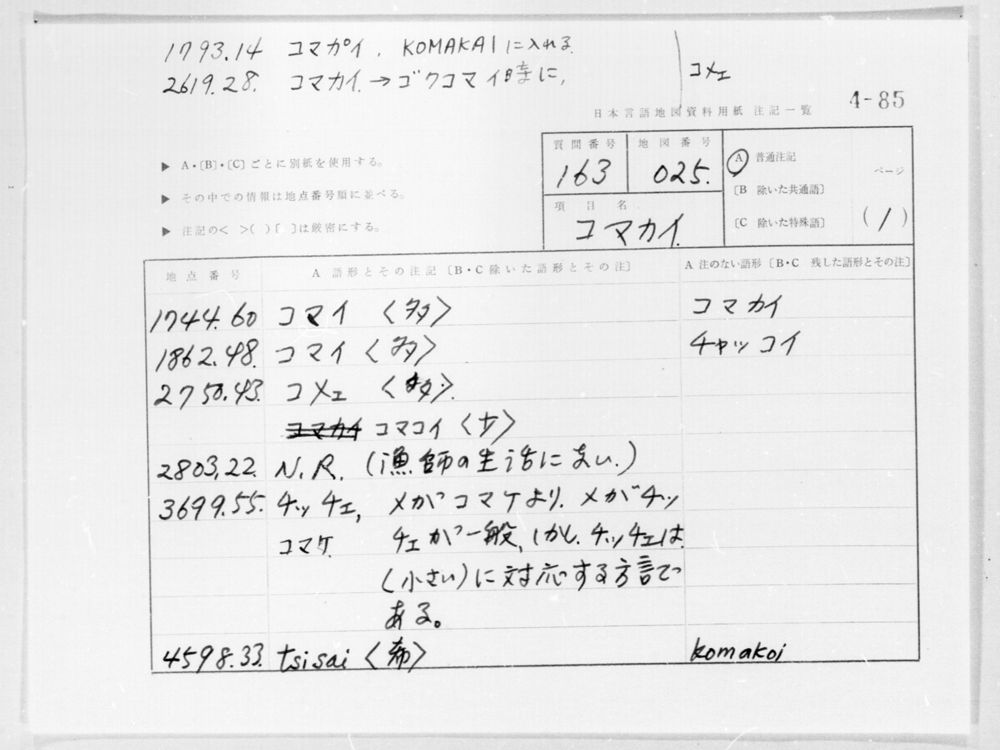 1793.14 コマカ゚イ、KOMAKAIに入れる
2619.28. コマカイ→ゴクコマイ時に、
コメェ
4-85
日本言語地図資料用紙 注記一覧
▶ A・〔B〕・〔C〕ごとに別紙を使用する。
▶ その中での情報は地点番号順に並べる。
▶ 注記の< >( )「 」は厳密にする。
質問番号 地図番号
163 025.
項目名
コマカイ
A 普通注記
〔B 除いた共通語〕
〔C 除いた特殊語〕
ページ
(1)
地点番号 A 語形とその注記〔B・C除いた語形とその注〕 A 注のない語形〔B・C 残した語形とその注〕
1744.60 コマイ 〈多〉 コマカイ
1862.48. コマイ〈多〉 チャッコイ
2750.43. コメェ 〈多〉
コマカイ コマコイ〈少〉
2803.22. N.R. (漁師の生活にない。)
3699.55. チッチェ, メガコマケより、メガチッ
コマケ. チェが一般、しかし、チッチェは
(小さい)に対応する方言で
ある。
4598.33. tsisai〈希〉 komakoi